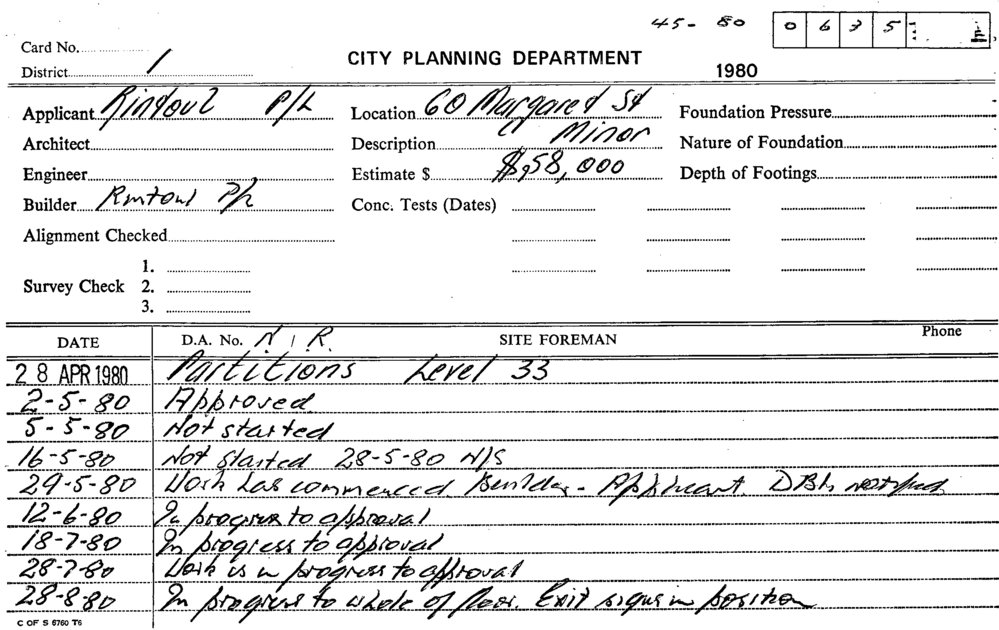 45- 80 0635
Card No.
District 1
CITY PLANNING DEPARTMENT
1980
Applicant Rintoul P/L Location 60 Margaret St Foundation Pressure
Architect Description Minor Nature of Foundation
Engineer Estimate $ $58,000 Depth of Footings
Builder Rintoul P/L Conc. Tests (Dates)
Alignment Checked
1.
Survey Check 2.
3.
DATE D.A. No. N I R. SITE FOREMAN Phone
28 APR 1980 Partitions Level 33
2-5-80 Approved
5-5-80 Not started
16-5-80 Not started 28-5-80 N/S
29-5-80 Work has commenced Builder - Applicant. notified
12-6-80 In progress to approval
18-7-80 In progress to approval
28-7-80 Work is in progress to approval
28-8-80 In progress to whole of floor. Exit signs in position
C OF S 6760 T6